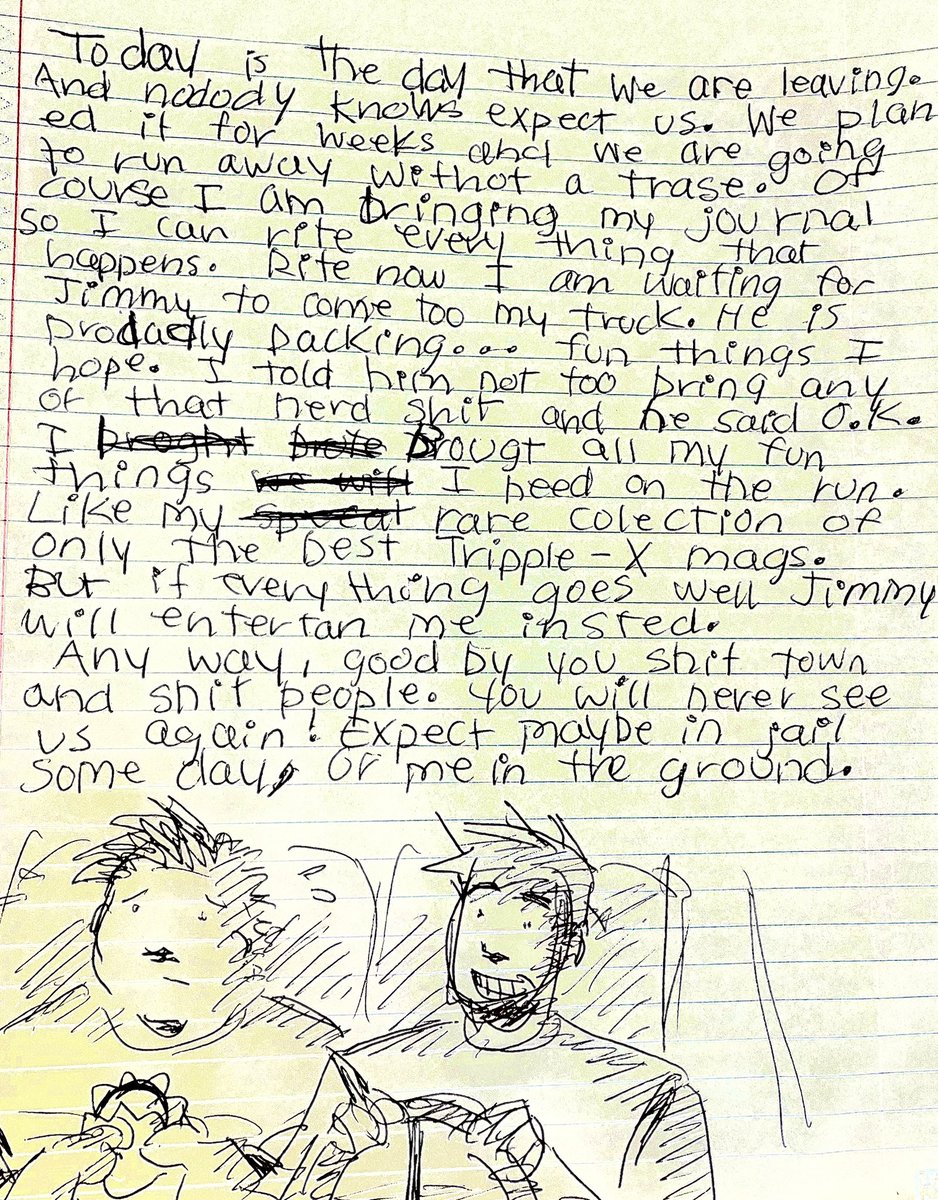 Today is the day that we are leaving.
And nodody knows expect us. We plan
ed it for weeks and we are going
to run away withot a trase. Of
course I am bringing my journal
so I can rite every thing that
happens. Rite now I am waiting for
Jimmy to come too my truck. He is
prodadly packing... fun things I
hope. I told him not too bring any
of that nerd shit and he said O.K.
I broght brote Brougt all my fun
things we will I need on the run.
Like my rare colection of
only the best Tripple-X mags.
But if every thing goes well Jimmy
will entertan me insted.
Any way, good by you shit town
and shit people. You will never see
us again! Expect maybe in jail
some day, or me in the ground.